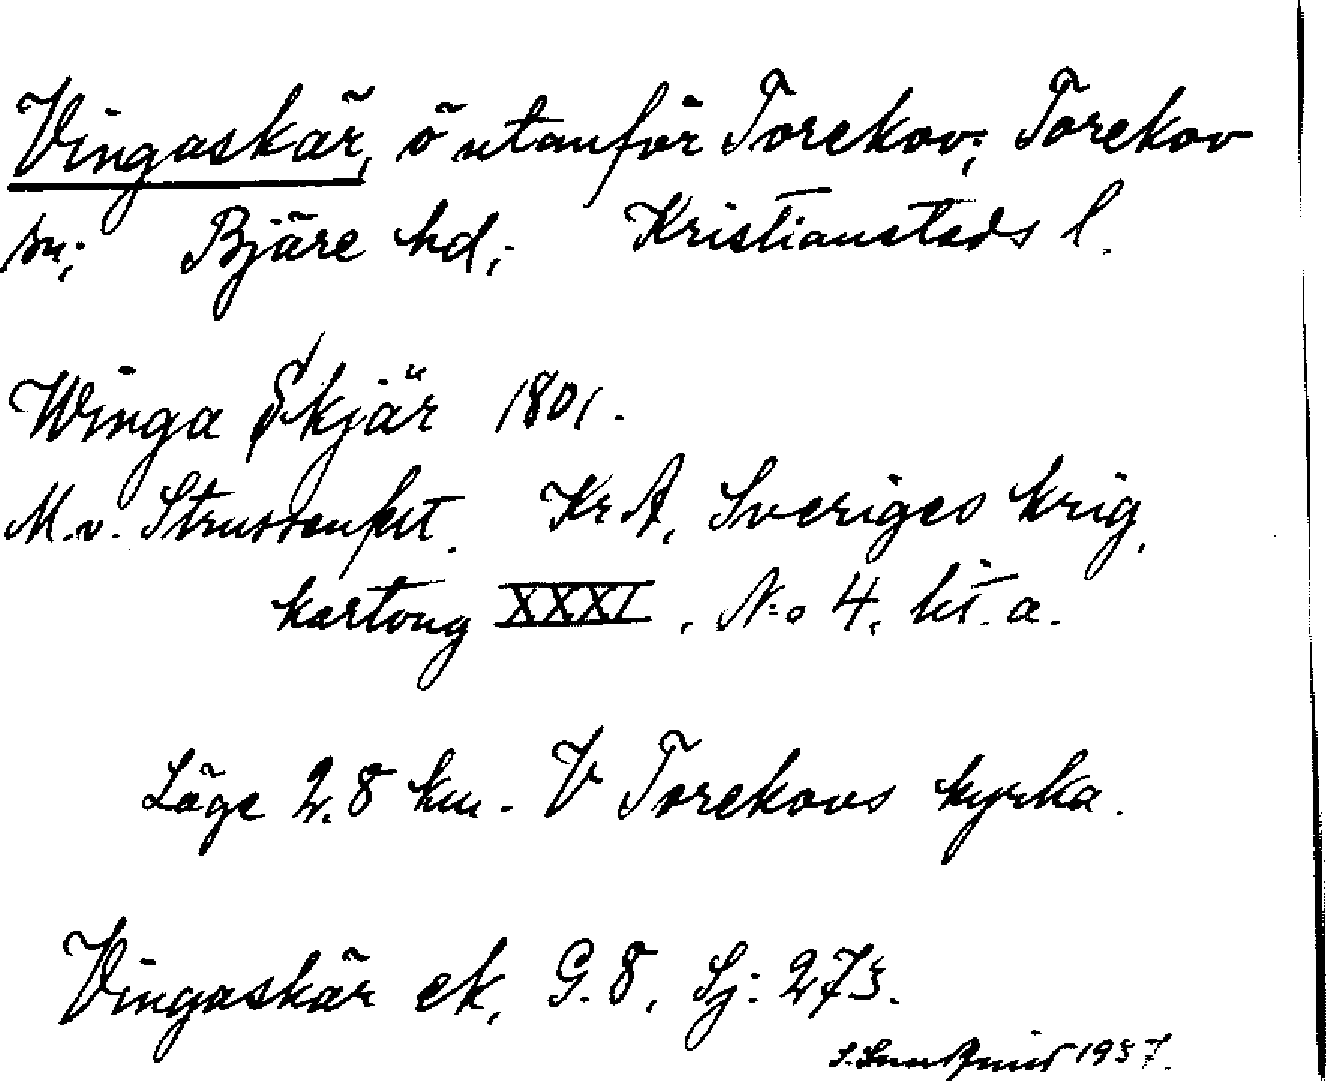 Vingaskär, ö utanför Torekov; Torekov
sn; Bjäre hd; Kristianstads l.
Winga Skjär 1801.
M.v. Strussenfelt. Kr A, Sveriges krig,
kartong XXXI, No 4, lit. a.
Läge 2.8 km. V Torekovs kyrka.
Vingaskär ek, G.8, Sj: 273.
1937.